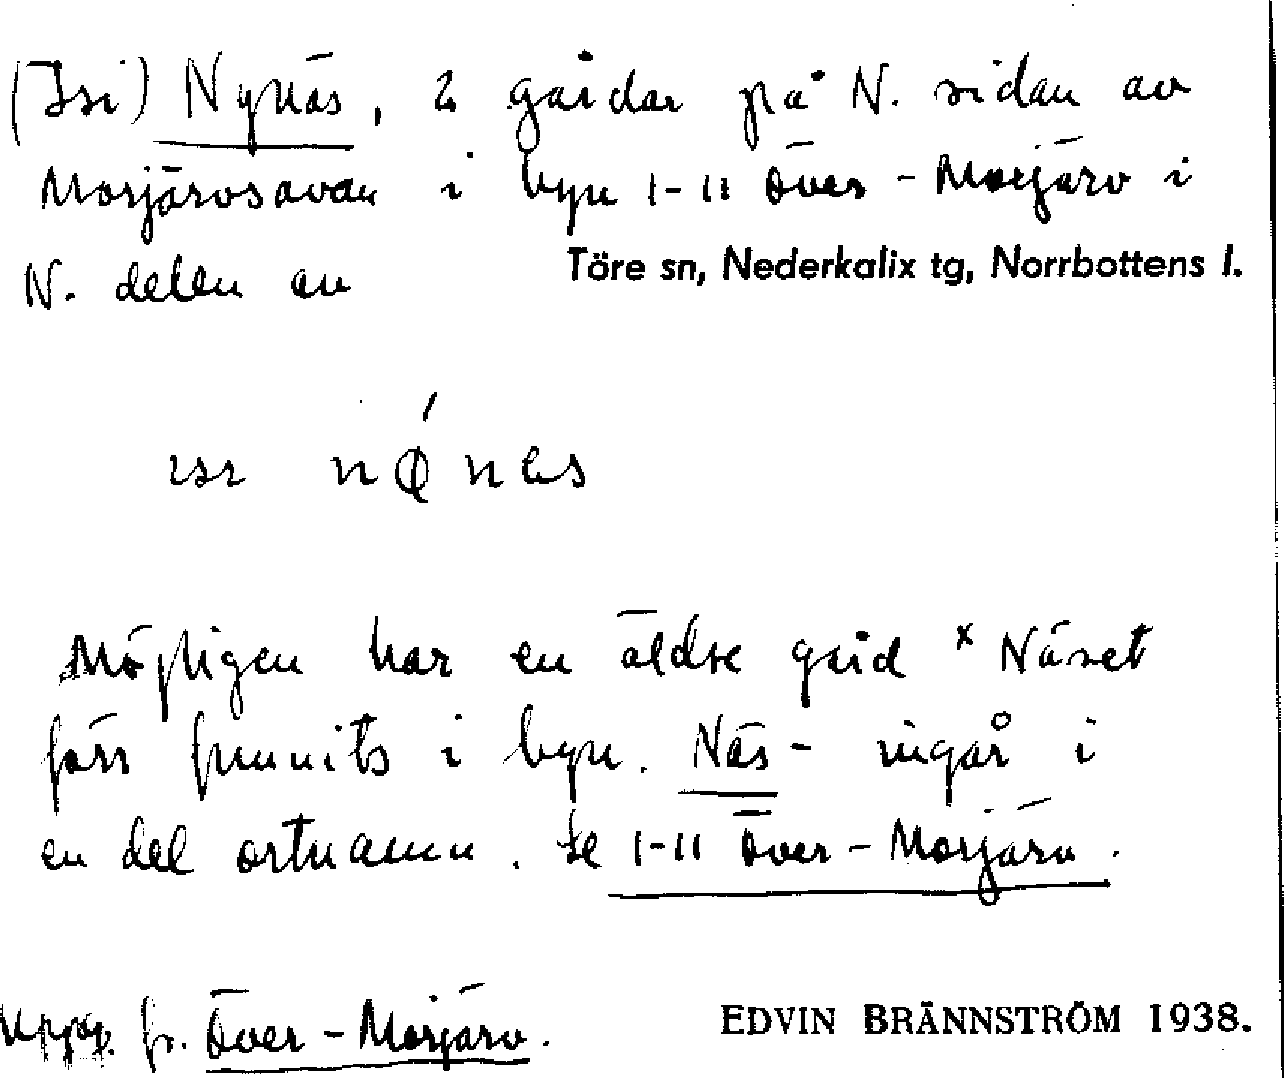 (Isi) Nynäs, 2 gårdar på N. sidan av
Morjärvsavan i byn 1-11 Över-Morjärv i
N. delen av Töre sn, Nederkalix tg, Norrbottens l.
Möjligen har en äldre gård × Näset
förr funnits i byn. Näs- ingår i
en del ortnamn. Se 1-11 Över-Morjärv.
Uppg. fr. Över-Morjärv. EDVIN BRÄNNSTRÖM 1938.